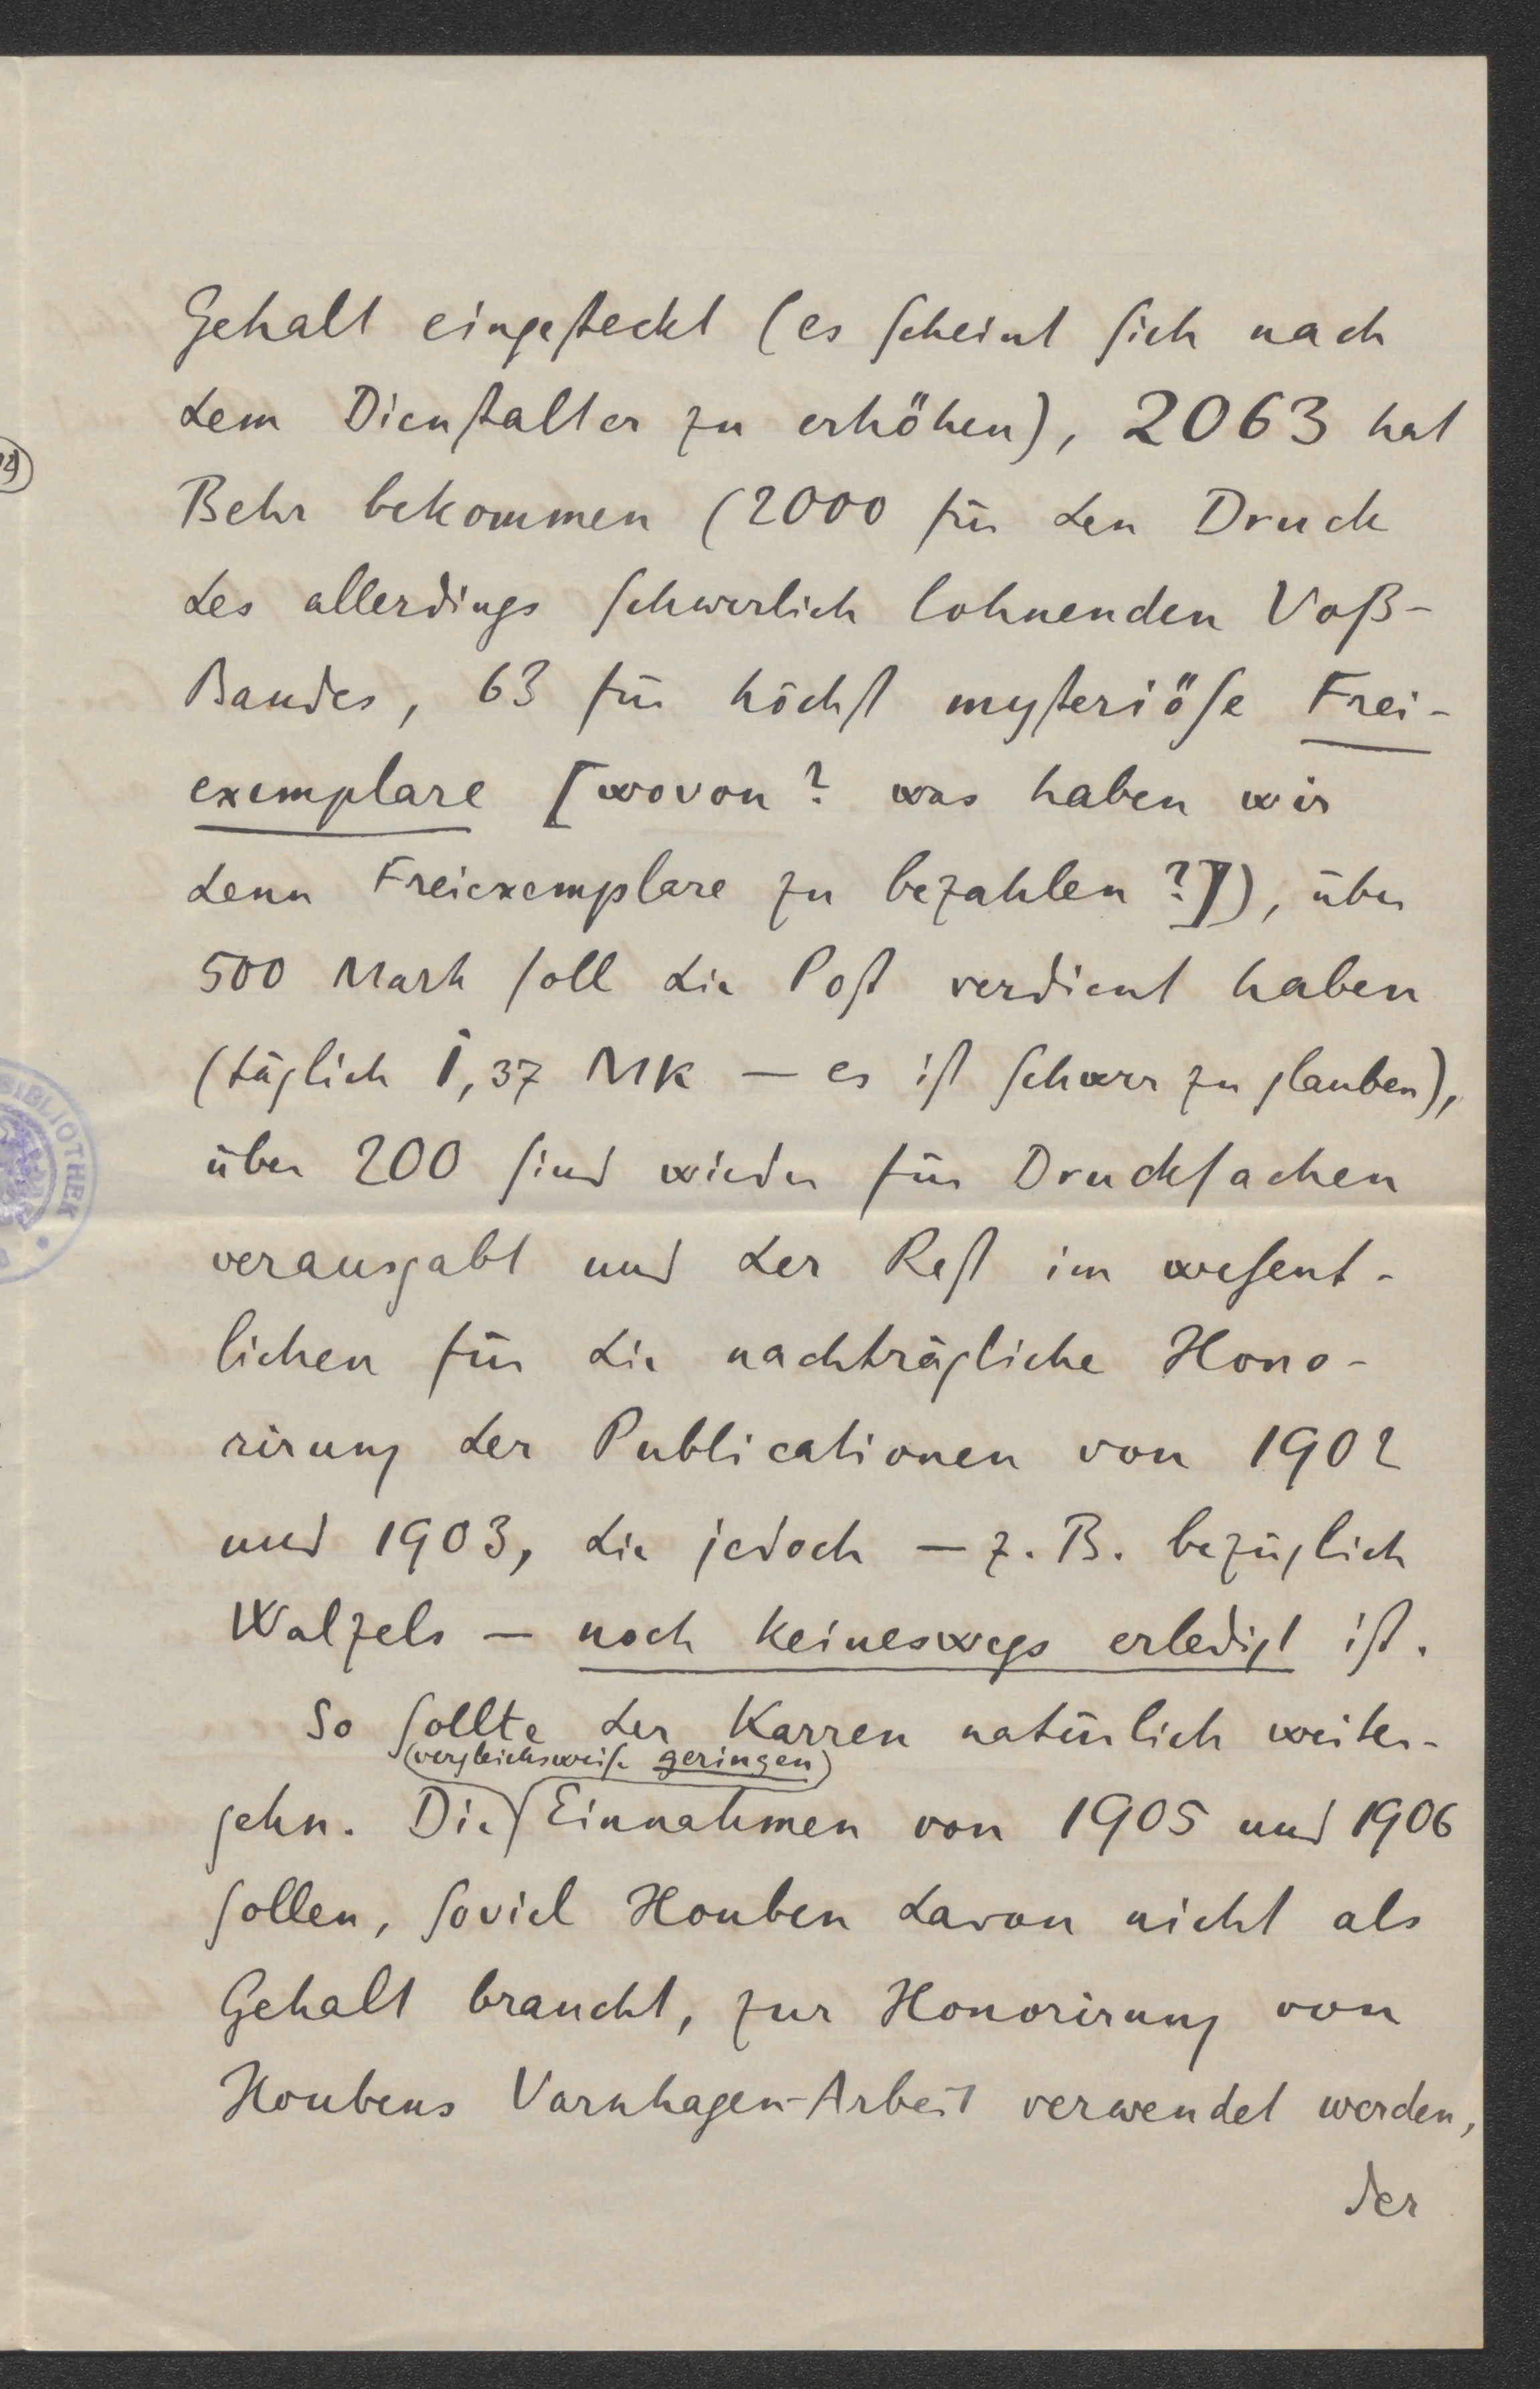 Gehalt eingesteckt (es scheint sich nach
dem Dienstalter zu erhöhen), 2063 hat
Behr bekommen (2000 für den Druck
des allerdings schwerlich lohnenden Voß-
Bandes, 63 für höchst mysteriöse Frei-
exemplare [wovon? was haben wir
denn Freiexemplare zu bezahlen?]), über
500 Mark soll die Post verdient haben
(täglich 1,37 MK — es ist schwer zu glauben),
über 200 sind wieder für Drucksachen
verausgabt und der Rest im wesent-
lichen für die nachträgliche Hono-
rirung der Publicationen von 1902
und 1903, die jedoch — z. B. bezüglich
Walzels — noch keineswegs erledigt ist.
So sollte der Karren natürlich weiter-
(vergleichsweise geringen)
gehn. Die Einnahmen von 1905 und 1906
sollen, soviel Houben davon nicht als
Gehalt braucht, zur Honorirung von
Houbens Varnhagen-Arbeit verwendet werden,
der
BIBLIOTHEK